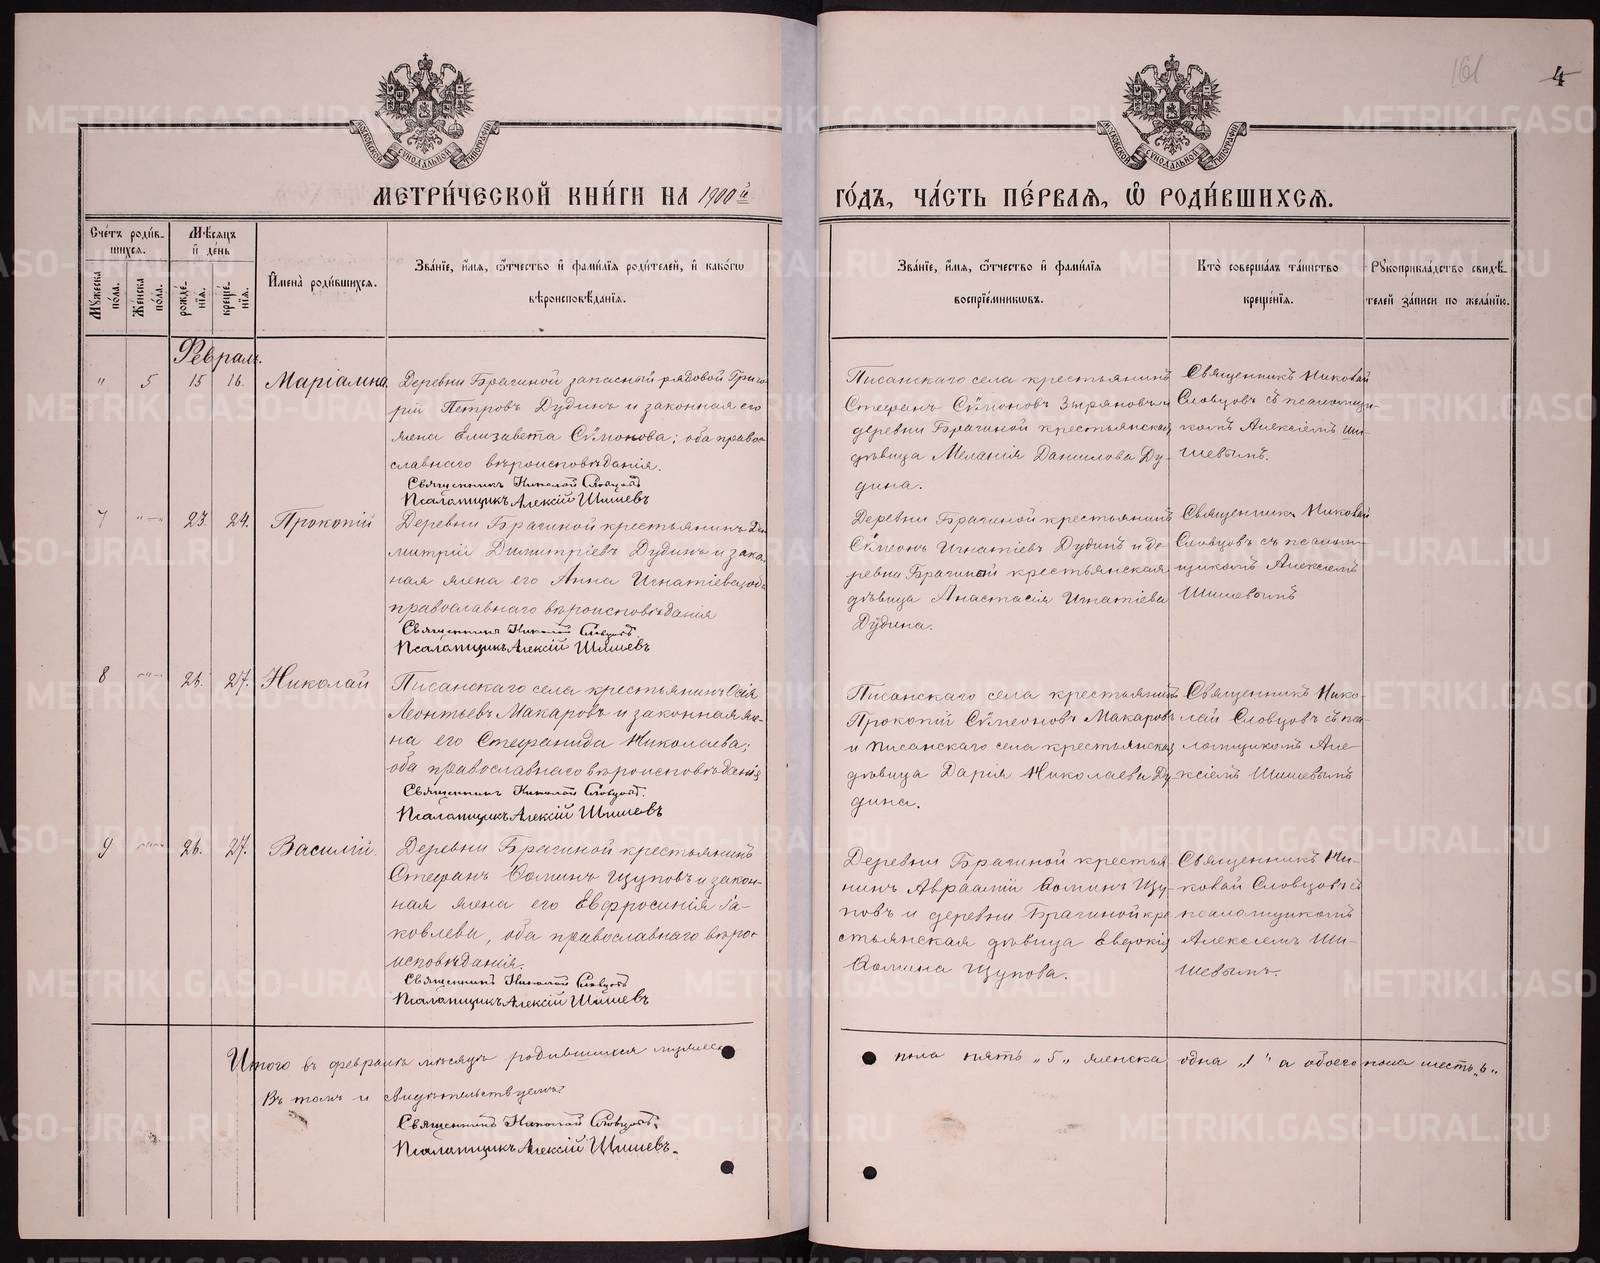 161
4
МЕТРИ́ЧЕСКОЙ КНИ́ГИ НА 1900й
ГО́ДЪ, ЧА́СТЬ ПЕ́РВАѦ, Ѡ҆ РОДИ́ВШИХСѦ.
Сче́тъ роди́в-
шихся.
Мѣ́сяцъ
и҆ де́нь
Мꙋ́жеска по́ла.
Же́нска по́ла.
рожде́нїя.
креще́нїя.
И҆мена̀ роди́вшихся.
Зва́нїе, и҆́мя, ѻ҆́тчество и҆ фами́лїя роди́телей, и҆ како́гѡ
вѣроисповѣ́данїя.
Зва́нїе, и҆́мя, ѻ҆́тчество и҆ фами́лїя
воспрїе́мниковъ.
Кто̀ соверша́лъ та́инство
креще́нїя.
Рꙋкоприкла́дство свидѣ́-
телей за́писи по жела́нїю.
Февраль.
" 5 15 16. Маріамна.
Деревни Брагиной запасный рядовой Григо-
рій Петровъ Дудинъ и законная его
жена Елизавета Сѵмонова; оба право-
славнаго вѣроисповѣданія.
Священникъ Николай Словцовъ
Псаломщикъ Алексій Шишевъ
Писанскаго села крестьянинъ
Стефанъ Сѵмоновъ Зыряновъ и
деревни Брагиной крестьянская
дѣвица Меланія Данилова Ду-
дина.
Священникъ Николай
Словцовъ съ псаломщи-
комъ Алексіемъ Ши-
шевымъ.
7 "—" 23. 24. Прокопій
Деревни Брагиной крестьянинъ Ди-
митрій Димитріевъ Дудинъ и закон-
ная жена его Анна Игнатіева; оба
православнаго вѣроисповѣданія
Священникъ Николай Словцовъ
Псаломщикъ Алексій Шишевъ
Деревни Брагиной крестьянинъ
Сѵмеонъ Игнатіевъ Дудинъ и де-
ревни Брагиной крестьянская
дѣвица Анастасія Игнатіева
Дудина.
Священникъ Николай
Словцовъ съ псалом-
щикомъ Алексіемъ
Шишевымъ
8 "—" 26. 27. Николай
Писанскаго села крестьянинъ Осія
Леонтьевъ Макаровъ и законная же-
на его Стефанида Николаева;
оба православнаго вѣроисповѣданія
Священникъ Николай Словцовъ.
Псаломщикъ Алексій Шишевъ
Писанскаго села крестьянинъ
Прокопій Сѵмеоновъ Макаровъ
и Писанскаго села крестьянская
дѣвица Дарія Николаева Ду-
дина.
Священникъ Нико-
лай Словцовъ съ пса-
ломщикомъ Але-
ксіемъ Шишевымъ
9 "—" 26. 27. Василій.
Деревни Брагиной крестьянинъ
Стефанъ Ѳоминъ Щуповъ и закон-
ная жена его Евфросинія Іа-
ковлева, оба православнаго вѣро-
исповѣданія.
Священникъ Николай Словцовъ
Псаломщикъ Алексій Шишевъ
Деревни Брагиной крестья-
нинъ Авраамій Ѳоминъ Щу-
повъ и деревни Брагиной кре-
стьянская дѣвица Евдокія
Ѳомина Щупова.
Священникъ Ни-
колай Словцовъ съ
псаломщикомъ
Алексіемъ Ши-
шевымъ.
Итого въ февралѣ мѣсяцѣ родившихся мужеска
пола пять „5„ женска одна „1" а обоего пола шесть „6„
Въ томъ и свидѣтельствуемъ:
Священникъ Николай Словцовъ.
Псаломщикъ Алексій Шишевъ.